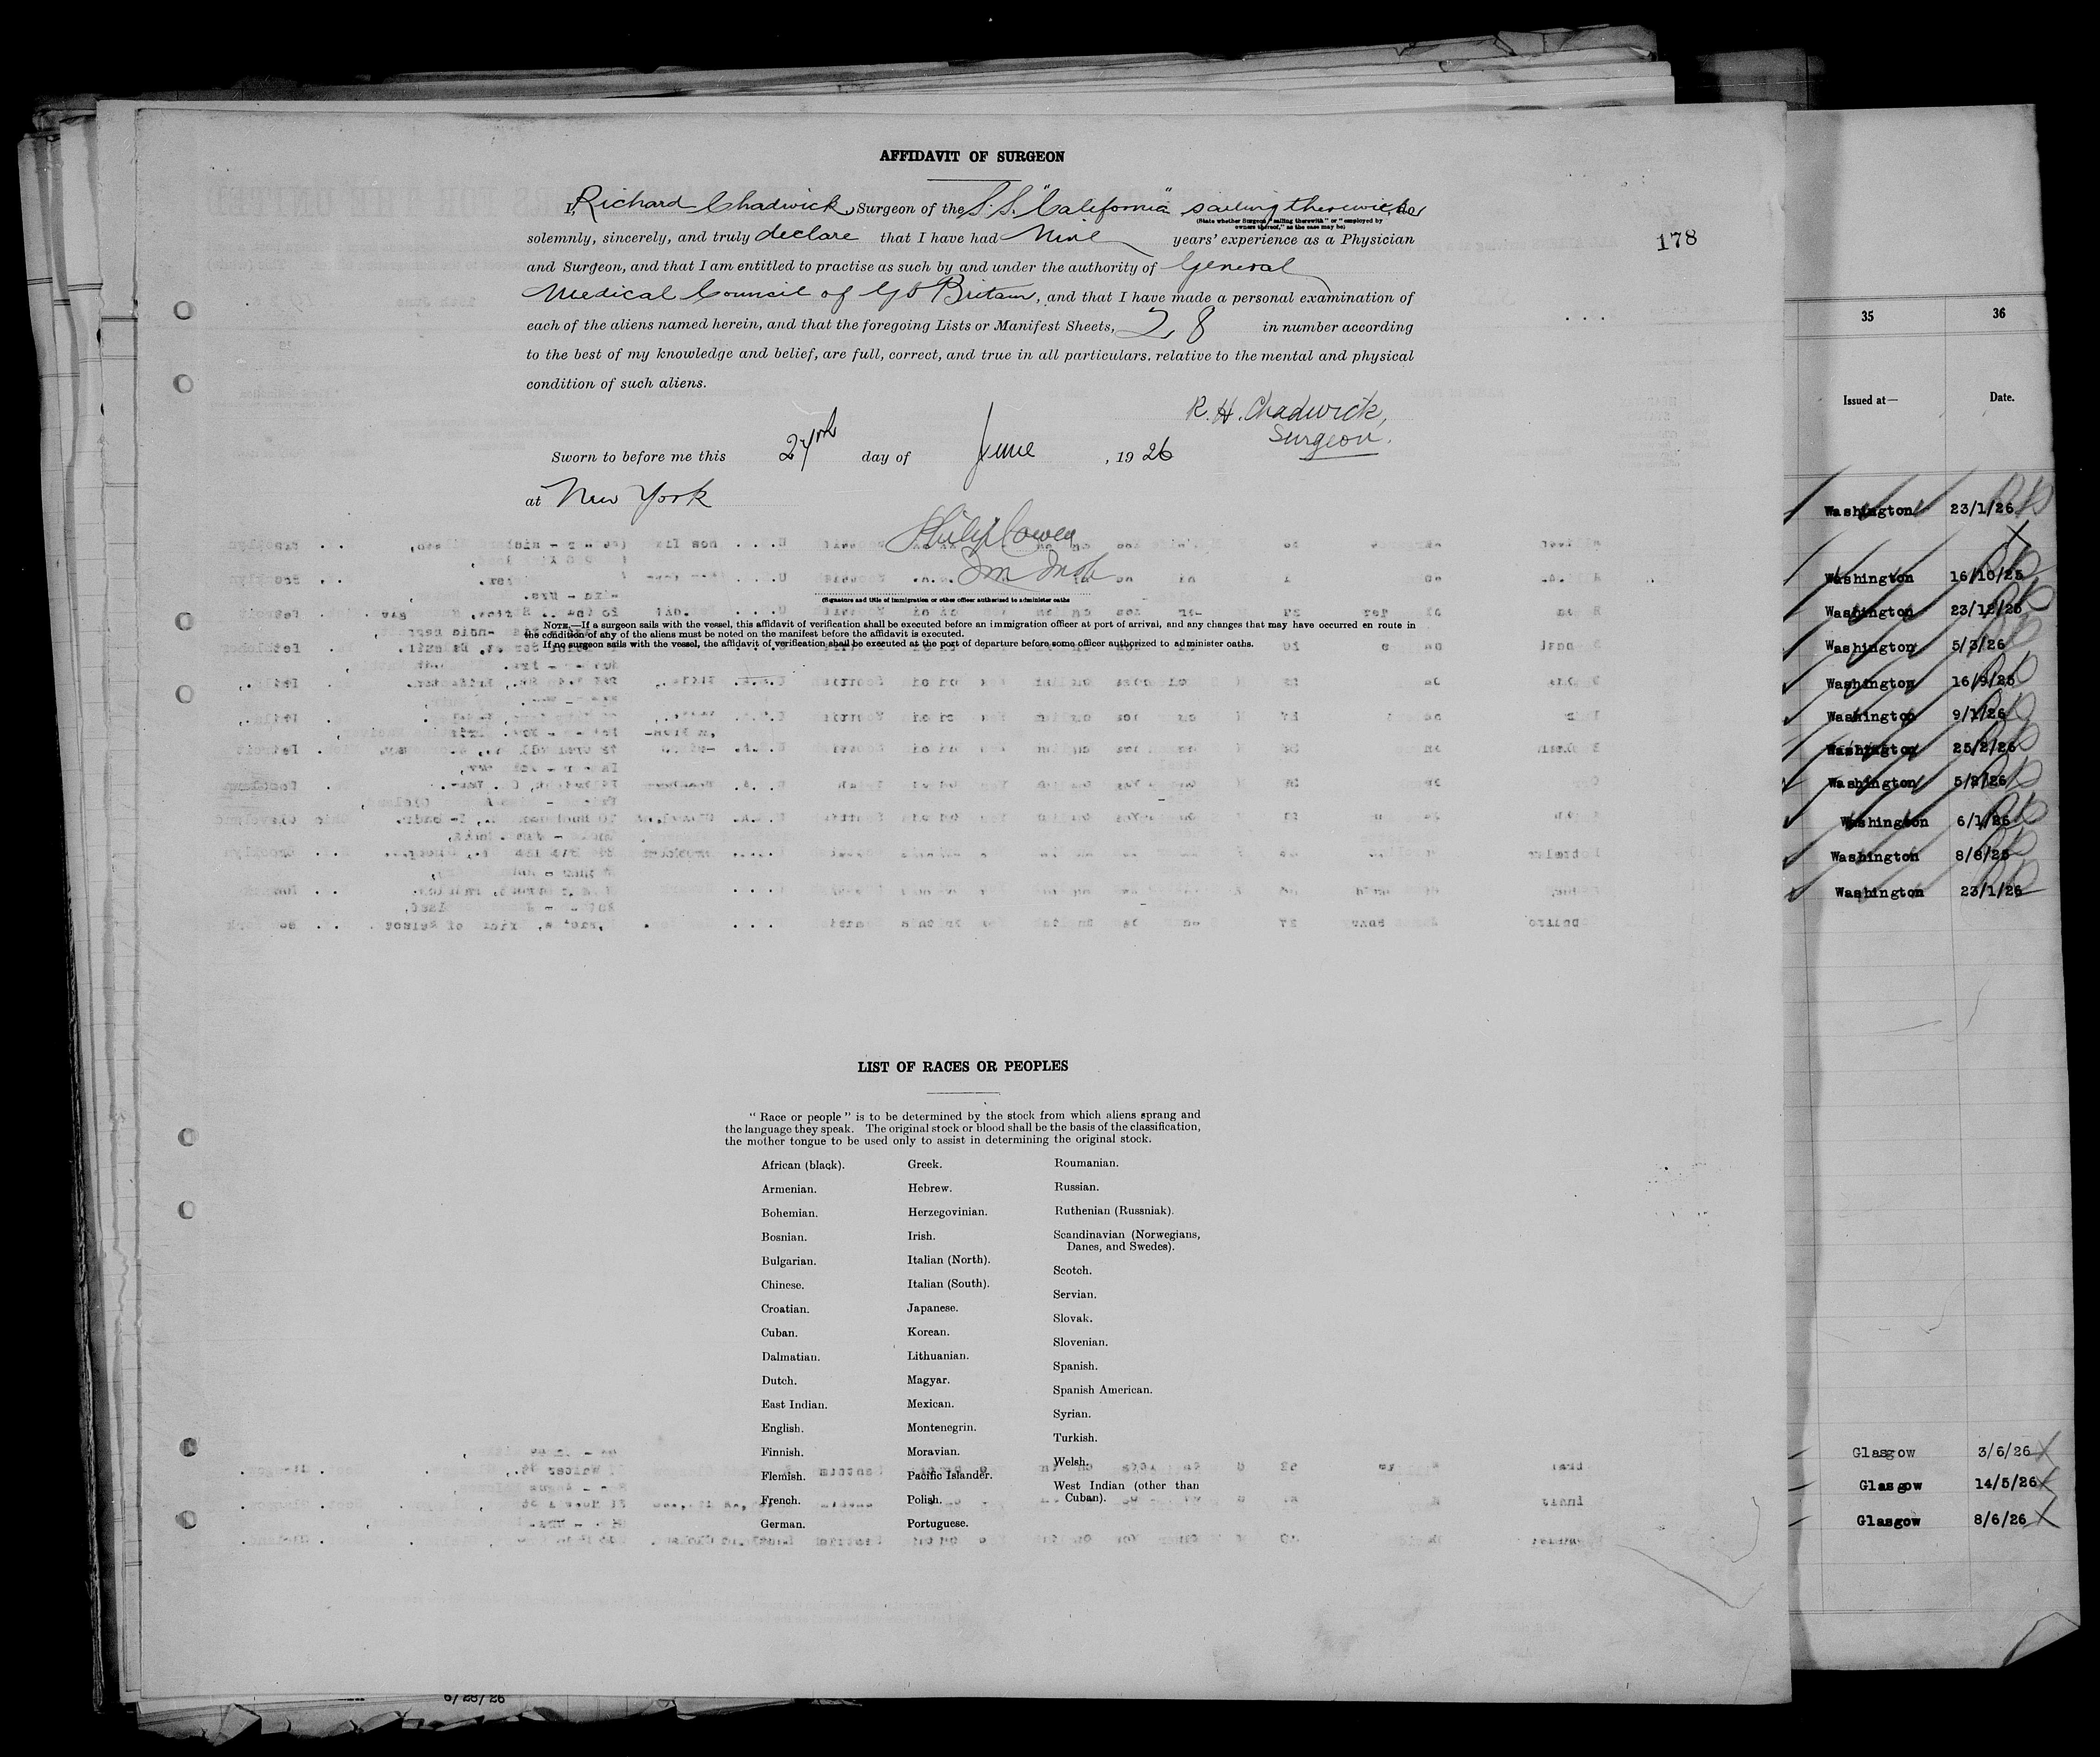 AFFIDAVIT OF SURGEON
I, Richard Chadwick, Surgeon of the S.S. "California" sailing therewith, do
(State whether Surgeon "sailing therewith" or "employed by
owners thereof," as the case may be)
solemnly, sincerely, and truly declare that I have had Nine years' experience as a Physician
and Surgeon, and that I am entitled to practise as such by and under the authority of General
Medical Council of Gt Britain, and that I have made a personal examination of
each of the aliens named herein, and that the foregoing Lists or Manifest Sheets, 28 in number according
to the best of my knowledge and belief, are full, correct, and true in all particulars, relative to the mental and physical
condition of such aliens.
R. H. Chadwick,
Surgeon.
Sworn to before me this day of June, 1926
at New York
Philip Cowen
Im Insp
(Signature and title of immigration or other officer authorized to administer oaths
NOTE.—If a surgeon sails with the vessel, this affidavit of verification shall be executed before an immigration officer at port of arrival, and any changes that may have occurred en route in
the condition of any of the aliens must be noted on the manifest before the affidavit is executed.
If no surgeon sails with the vessel, the affidavit of verification shall be executed at the port of departure before some officer authorized to administer oaths.
178
LIST OF RACES OR PEOPLES
"Race or people" is to be determined by the stock from which aliens sprang and
the language they speak. The original stock or blood shall be the basis of the classification,
the mother tongue to be used only to assist in determining the original stock.
African (black).
Armenian.
Bohemian.
Bosnian.
Bulgarian.
Chinese.
Croatian.
Cuban.
Dalmatian.
Dutch.
East Indian.
English.
Finnish.
Flemish.
French.
German.
Greek.
Hebrew.
Herzegovinian.
Irish.
Italian (North).
Italian (South).
Japanese.
Korean.
Lithuanian.
Magyar.
Mexican.
Montenegrin.
Moravian.
Pacific Islander.
Polish.
Portuguese.
Roumanian.
Russian.
Ruthenian (Russniak).
Scandinavian (Norwegians,
Danes, and Swedes).
Scotch.
Servian.
Slovak.
Slovenian.
Spanish.
Spanish American.
Syrian.
Turkish.
Welsh.
West Indian (other than
Cuban).
35 36
Issued at— Date.
Washington 23/1/26
Washington 16/10/25
Washington 23/12/25
Washington 5/3/26
Washington 16/9/25
Washington 9/1/26
Washington 25/2/26
Washington
Washington 6/1/26
Washington 8/8/25
Washington 23/1/26
Glasgow 3/6/26
Glasgow 14/5/26
Glasgow 8/6/26
6/28/26